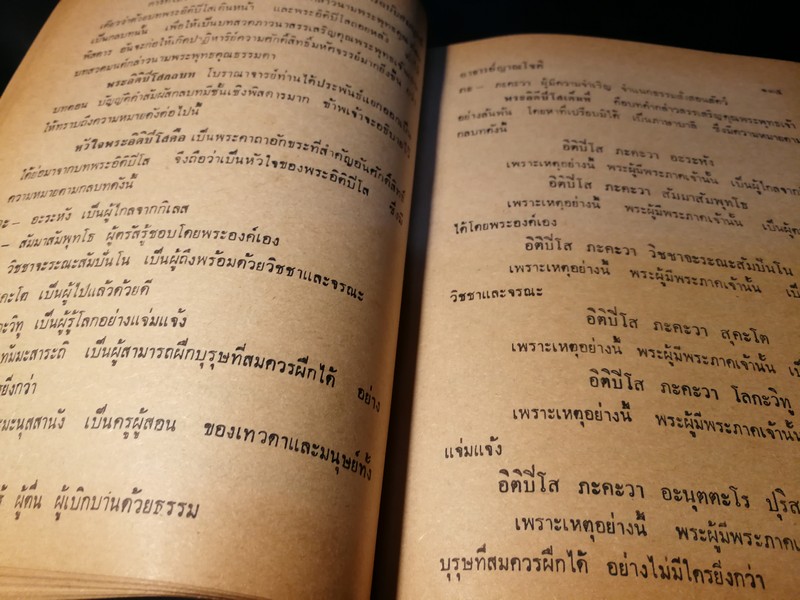 เป็นกลบทนั้น เพื่อให้เป็นบทสวดภาวนาสรรเสริญคุณพระพุทธเจ้า
พิสดาร อันจะก่อให้เกิดปาฏิหาริย์ความศักดิ์สิทธิ์มหัศจรรย์มากยิ่งขึ้น
บทสวดมนต์กล่าวนามพระพุทธคุณธรรมดา
พระอิติปิโสกลบท โบราณาจารย์ท่านได้ประพันธ์แยกออกเป็น
บทตอน บัญญัติคำสัมผัสกลบทมีชั้นเชิงพิสดารมาก ข้าพเจ้าจะอธิบาย
ให้ทราบถึงความหมายดังต่อไปนี้
หัวใจพระอิติปิโสคือ เป็นพระคาถาอักขระที่สำคัญอันศักดิ์สิทธิ์
ได้ย่อมาจากบทพระอิติปิโส จึงถือว่าเป็นหัวใจของพระอิติปิโส ซึ่งมี
ความหมายตามกลบทดังนี้
อะระหัง เป็นผู้ไกลจากกิเลส
– สัมมาสัมพุทโธ ผู้ตรัสรู้ชอบโดยพระองค์เอง
วิชชาจะระณะสัมปันโน เป็นผู้ถึงพร้อมด้วยวิชชาและจรณะ
คะโต เป็นผู้ไปแล้วด้วยดี
กะวิทู เป็นผู้รู้โลกอย่างแจ่มแจ้ง
ทัมมะสาระถิ เป็นผู้สามารถฝึกบุรุษที่สมควรฝึกได้ อย่าง
ยิ่งกว่า
มะนุสสานัง เป็นครูผู้สอน ของเทวดาและมนุษย์ทั้ง
ผู้ตื่น ผู้เบิกบานด้วยธรรม
อาจารย์ญาณโชติ
คะ – ภะคะวา ผู้มีความจำเริญ จำแนกธรรมสั่งสอนสัตว์
พระอิติปิโสเต็มที่ คือบทคำกล่าวสรรเสริญคุณพระพุทธเจ้า
อย่างล้นพ้น โดยหาที่เปรียบมิได้ เป็นภาษาบาลี ซึ่งมีความหมายตาม
กลบทดังนี้
อิติปิโส ภะคะวา อะระหัง
เพราะเหตุอย่างนี้ พระผู้มีพระภาคเจ้านั้น เป็นผู้ไกลจาก
อิติปิโส ภะคะวา สัมมาสัมพุทโธ
เพราะเหตุอย่างนี้ พระผู้มีพระภาคเจ้านั้น เป็นผู้
ได้โดยพระองค์เอง
อิติปิโส ภะคะวา วิชชาจะระณะสัมปันโน
เพราะเหตุอย่างนี้ พระผู้มีพระภาคเจ้านั้น เป็น
วิชชาและจรณะ
อิติปิโส ภะคะวา สุคะโต
เพราะเหตุอย่างนี้ พระผู้มีพระภาคเจ้านั้น
อิติปิโส ภะคะวา โลกะวิทู
เพราะเหตุอย่างนี้ พระผู้มีพระภาคเจ้านั้น
แจ่มแจ้ง
อิติปิโส ภะคะวา อะนุตตะโร ปุริส
เพราะเหตุอย่างนี้ พระผู้มีพระภาค
บุรุษที่สมควรฝึกได้ อย่างไม่มีใครยิ่งกว่า